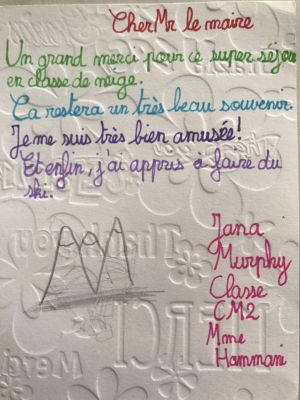 Cher Mr le maire
Un grand merci pour ce super séjour
en classe de neige.
Ça restera un très beau souvenir.
Je me suis très bien amusée!
Et enfin, j'ai appris à faire du
ski.
Jana
Murphy
Classe
CM2
Mme
Hammani
Thank you
MERCI
Merci